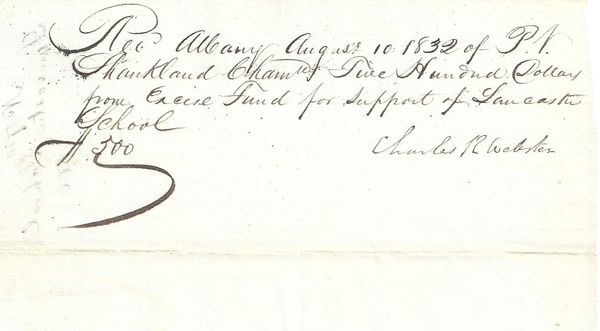 Recd Albany August 10 1832 of P. V.
Shankland Chamn Five Hundred Dollars
from Excise Fund for Support of Lancaster
School
$ 500 Charles R Webster